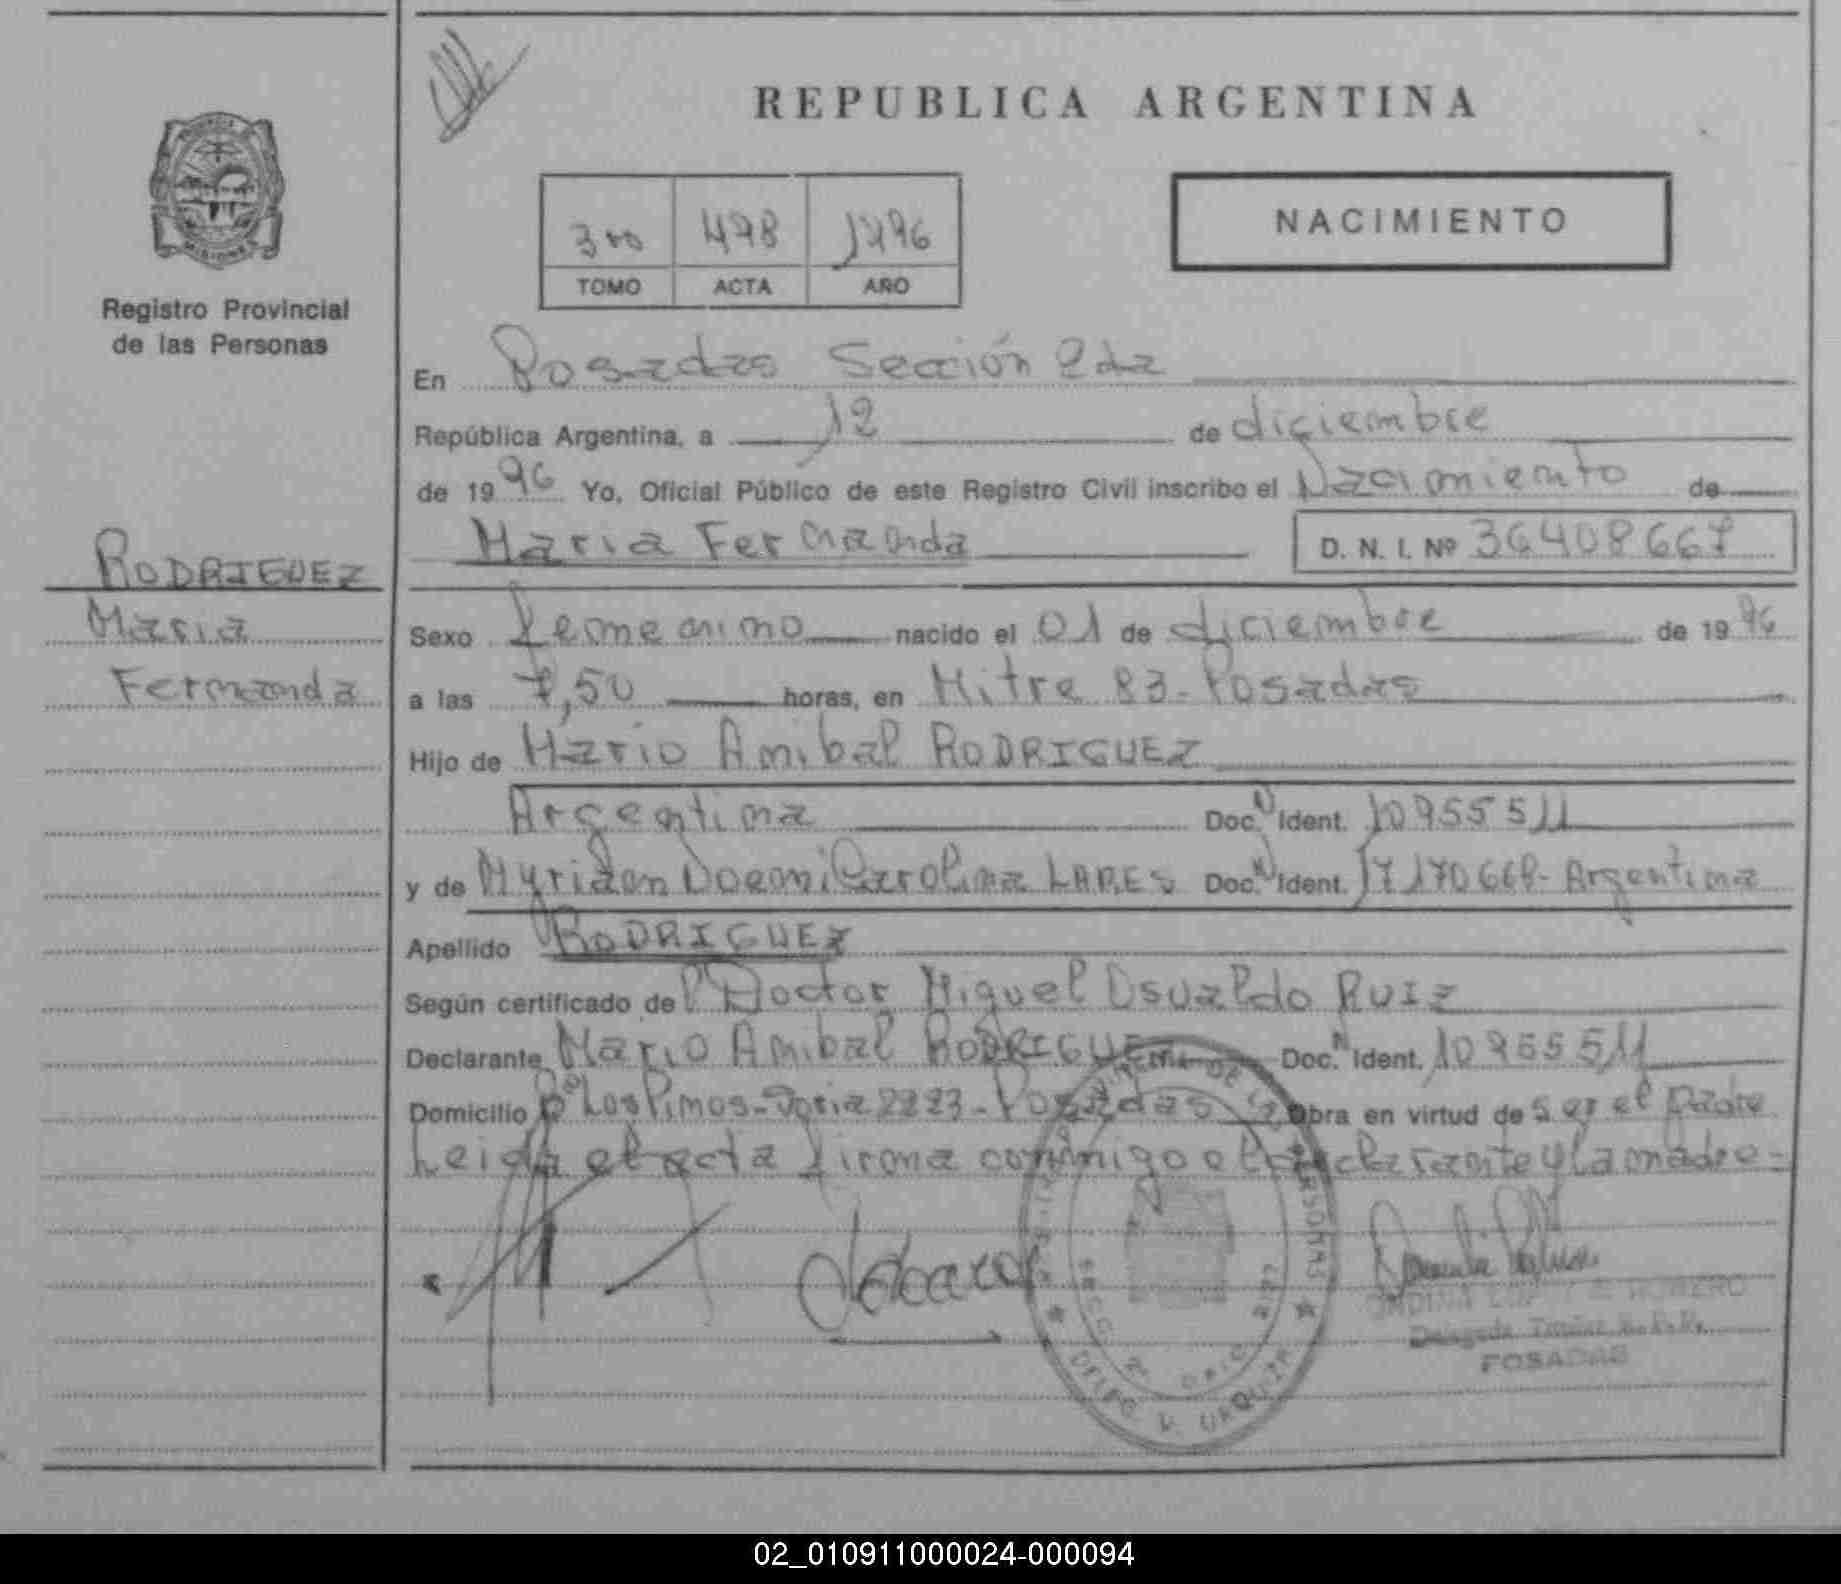 REPUBLICA ARGENTINA
NACIMIENTO
478 1996
TOMO ACTA AÑO
Registro Provincial
de las Personas
En Posadas Sección 2da
República Argentina, a 12 de diciembre
de 1996 Yo, Oficial Público de este Registro Civil inscribo el Nacimiento de
Maria Fernanda D. N. I. Nº 36408667
RODRIGUEZ
Maria
Fernanda
Sexo femenino nacido el 01 de diciembre de 1996
a las 7,50 horas, en Mitre 83 - Posadas
Hijo de Mario Anibal RODRIGUEZ
Argentina Doc. Ident. 10955511
y de Myriam Noemi Carolina Doc. Ident. Argentina
Apellido RODRIGUEZ
Según certificado del Doctor Miguel Osvaldo RUIZ
Declarante Mario Anibal RODRIGUEZ Doc. Ident. 10955511
Domicilio Bº Los Pinos - Posadas Obra en virtud de ser el padre
Leida el acta firma conmigo el declarante y la madre =
DE LAS PERSONAS
DELEG. V. URQUIZA
POSADAS
02_010911000024-000094